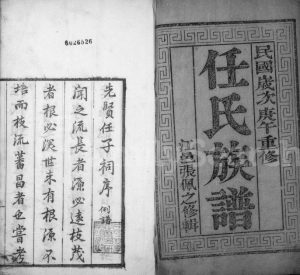 民國歲次庚午重修
任氏族譜
江邑張佩之修輯
6026526
先賢任子祠序
例譜
聞之流是者源必遠枝茂
者根必深世未有根源不
培而枝流蕃昌者也嘗考